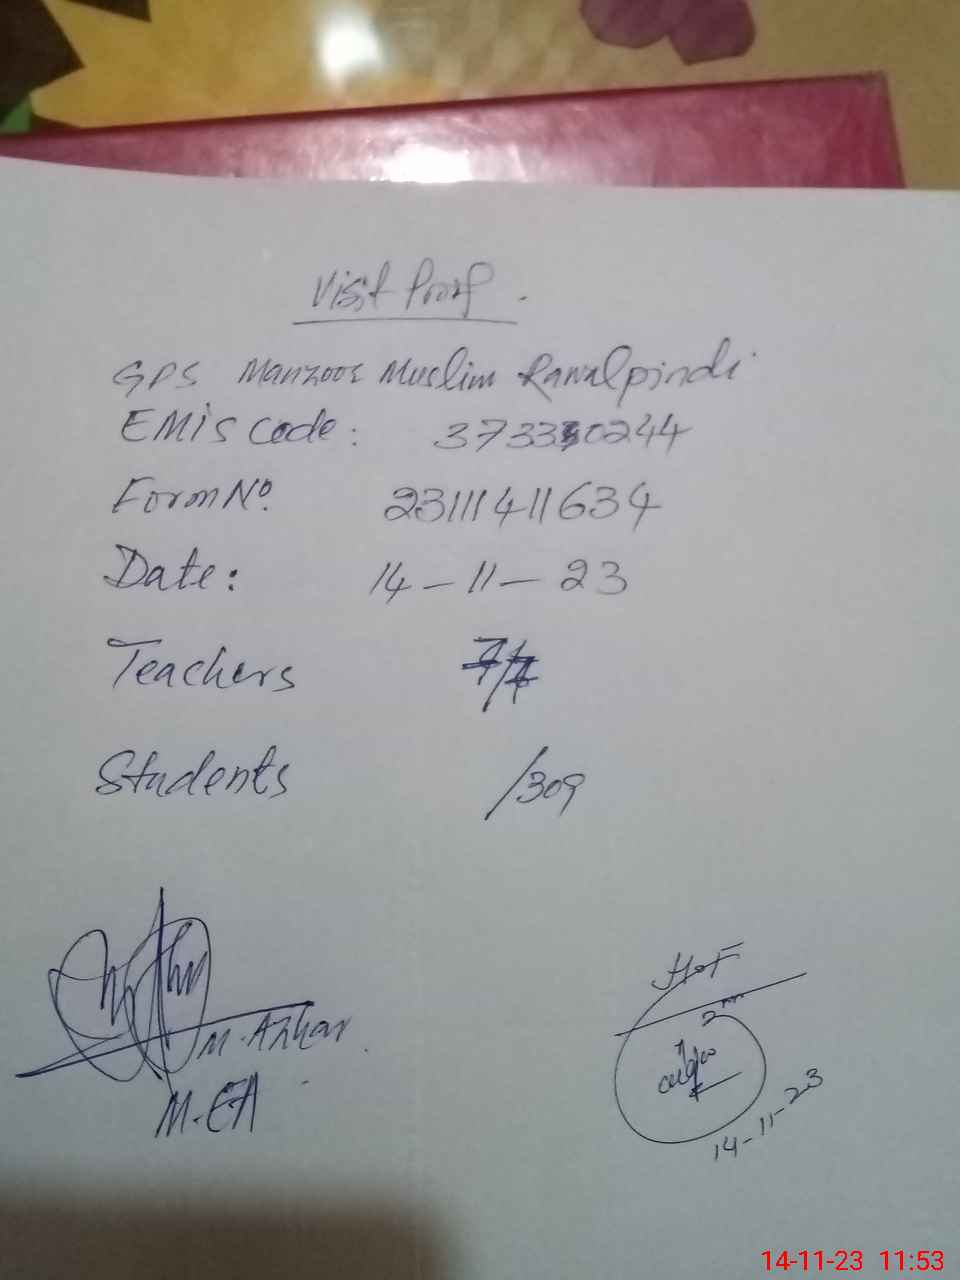 Visit Proof.
GPS Manzoor Muslim Rawalpindi
EMIS Code: 37330244
Form No. 23111411634
Date: 14-11-23
Teachers 7/7
Students /309
M. Azhar
M.EA
HOF
14-11-23
14-11-23 11:53